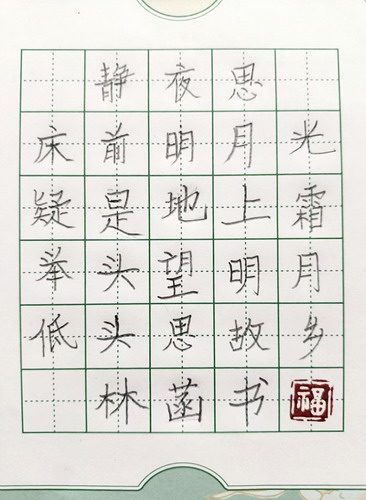 静夜思
床前明月光
疑是地上霜
举头望明月
低头思故乡
林菡书福